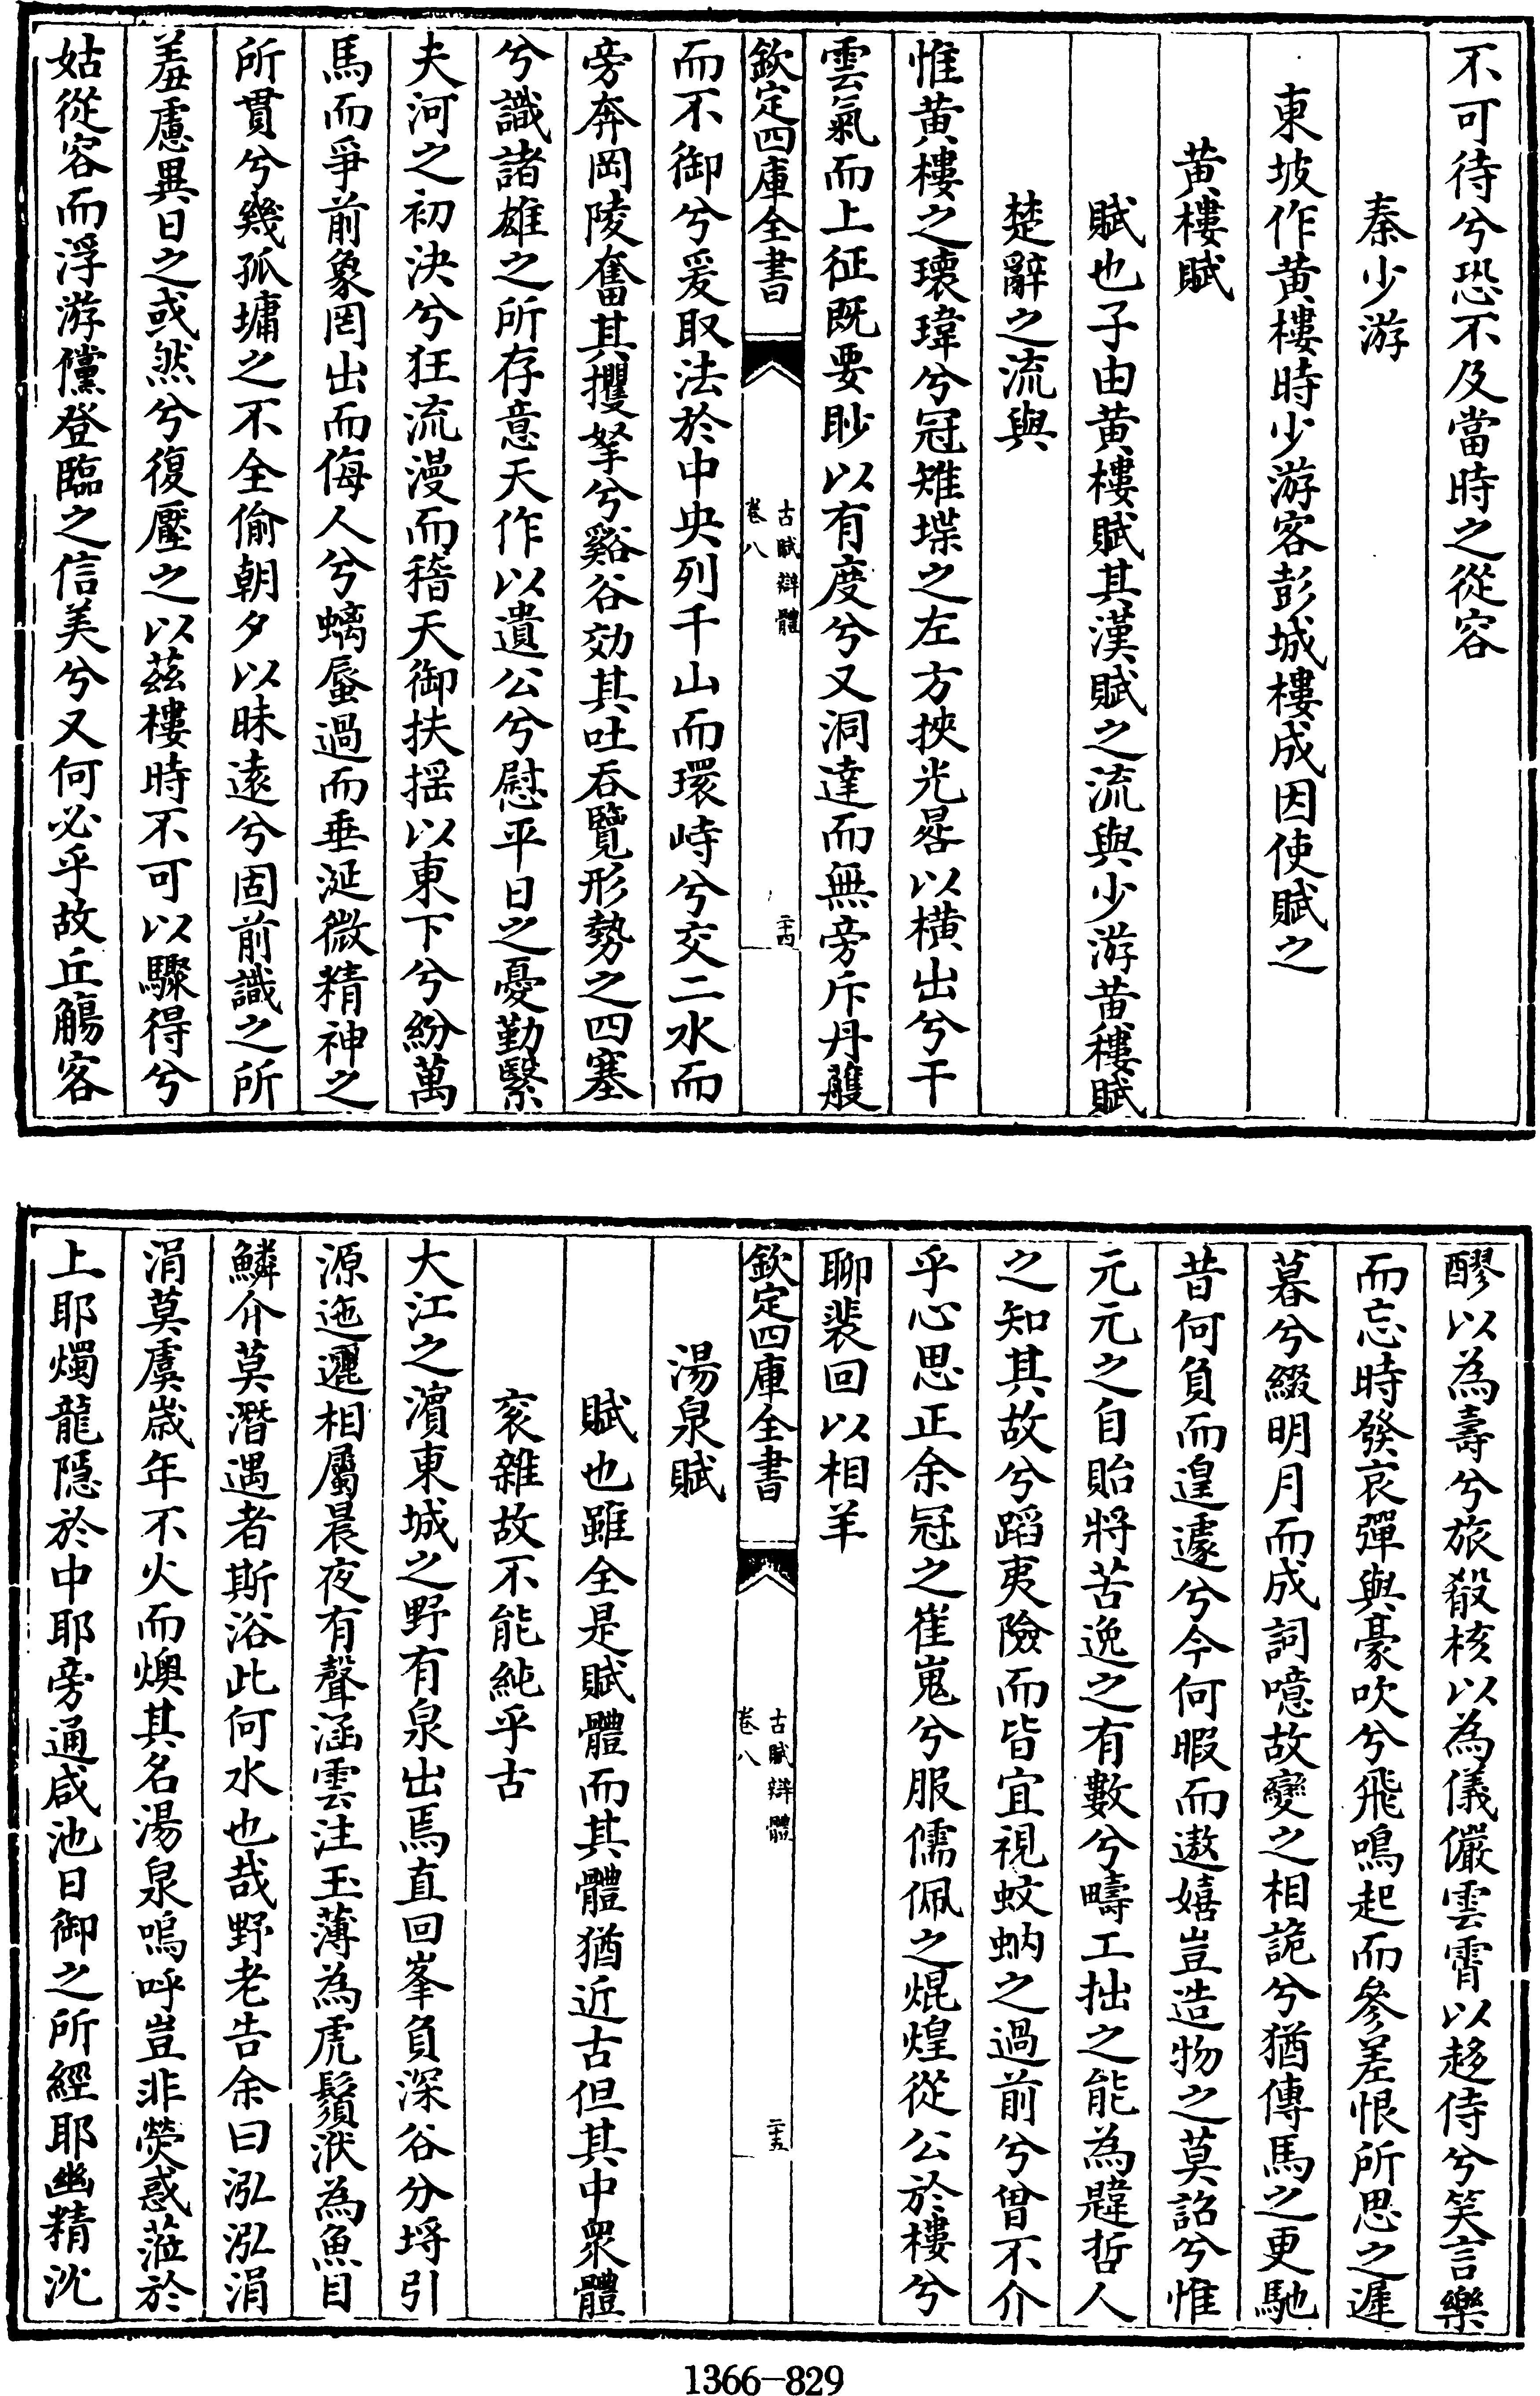 不可待兮恐不及當時之從容
秦少游
東坡作黄樓時少游客彭城樓成因使賦之
黄樓賦
賦也子由黄樓賦其漢賦之流與少游黄樓賦
楚辭之流與
惟黄樓之瓌瑋兮冠雉堞之左方挾光晷以橫出兮干
雲氣而上征既要眇以有度兮又洞達而無旁斥丹雘
欽定四庫全書
古賦辯體
卷八
二十四
而不御兮爰取法於中央列千山而環峙兮交二水而
旁奔岡陵奮其攫拏兮谿谷効其吐吞覽形勢之四塞
兮識諸雄之所存意天作以遺公兮慰平日之憂勤緊
夫河之初決兮狂流漫而稽天御扶揺以東下兮紛萬
馬而爭前象罔出而侮人兮螭蜃過而垂涎微精神之
所貫兮幾孤墉之不全偷朝夕以昧遠兮固前識之所
羞慮異日之或然兮復壓之以茲樓時不可以驟得兮
姑從容而浮游儻登臨之信美兮又何必乎故丘觴客
醪以為壽兮旅殽核以為儀儼雲霄以趍侍兮笑言樂
而忘時發哀彈與豪吹兮飛鳴起而參差恨所思之遲
暮兮綴明月而成詞噫故變之相詭兮猶傳馬之更馳
昔何負而遑遽兮今何暇而遨嬉豈造物之莫詔兮惟
元元之自貽將苦逸之有數兮疇工拙之能為韙哲人
之知其故兮蹈夷險而皆宜視蚊蚋之過前兮曽不介
乎心思正余冠之崔嵬兮服儒佩之焜煌從公於樓兮
聊裴回以相羊
欽定四庫全書
古賦辯體
卷八
二十五
湯泉賦
賦也雖全是賦體而其體猶近古但其中衆體
衮雜故不能純乎古
大江之濵東城之野有泉出焉直回峯負深谷分埓引
源迤邐相屬晨夜有聲涵雲注玉薄為虎鬚洑為魚目
鱗介莫潛遇者斯浴此何水也哉野老告余曰泓泓涓
涓莫虞歳年不火而燠其名湯泉嗚呼豈非熒惑蒞於
上耶燭龍隠於中耶旁通咸池日御之所經耶幽精沈
1366-829